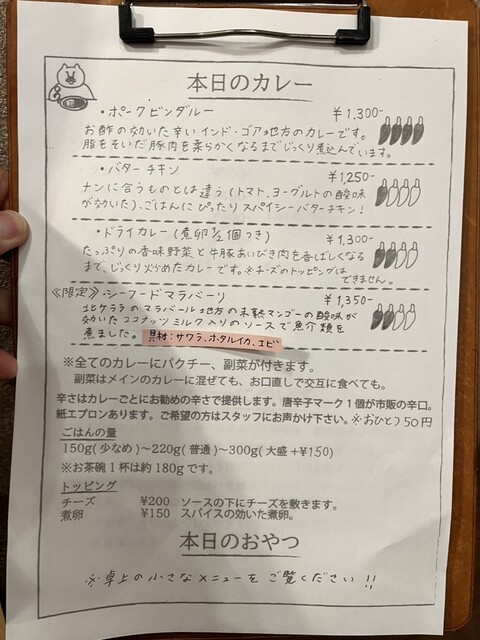 本日のカレー
・ポークビンダルー ¥1,300-
お酢の効いた辛いインド・ゴア地方のカレーです。
脂をそいだ豚肉を柔らかくなるまでじっくり煮込んでいます。
・バターチキン ¥1,250-
ナンに合うものとは違う(トマト、ヨーグルトの酸味
が効いた)、ごはんにぴったりスパイシーバターチキン!
・ドライカレー(煮卵½個つき) ¥1,300-
たっぷりの香味野菜と牛豚あいびき肉を香ばしくなる
まで、じっくり炒めたカレーです。※チーズのトッピングは
できません。
《限定》・シーフードマラバーリ ¥1,350-
北ケララのマラバール地方の未熟マンゴーの酸味が
効いたココナッツミルク入りのソースで魚介類を
煮ました。 具材:サワラ、ホタルイカ、エビ
※全てのカレーにパクチー、副菜が付きます。
副菜はメインのカレーに混ぜても、お口直しで交互に食べても。
辛さはカレーごとにお勧めの辛さで提供します。唐辛子マーク1個が市販の辛口。
紙エプロンあります。ご希望の方はスタッフにお声かけ下さい。※おひとつ50円
ごはんの量
150g(少なめ)〜220g(普通)〜300g(大盛+¥150)
※お茶碗1杯は約180gです。
トッピング
チーズ ¥200 ソースの下にチーズを敷きます。
煮卵 ¥150 スパイスの効いた煮卵。
本日のおやつ
※卓上の小さなメニューをご覧ください!!